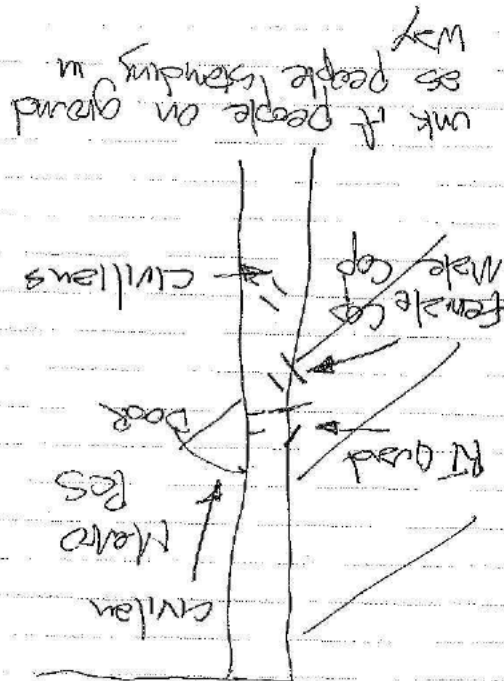 Civilian
Metro
RT Quad
Door
Female Cop
Male Cop
Civilians
unk if people on ground
as people standing in
way